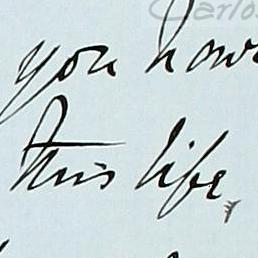 Carlos
you have
this life,